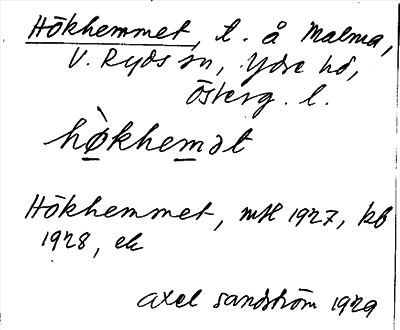 Hökhemmet, t. å Malma,
V. Ryds sn, Ydre hd,
Österg. l.
hø̀khemət
Hökhemmet, mtl 1927, kb
1928, ek
Axel Sandström 1929